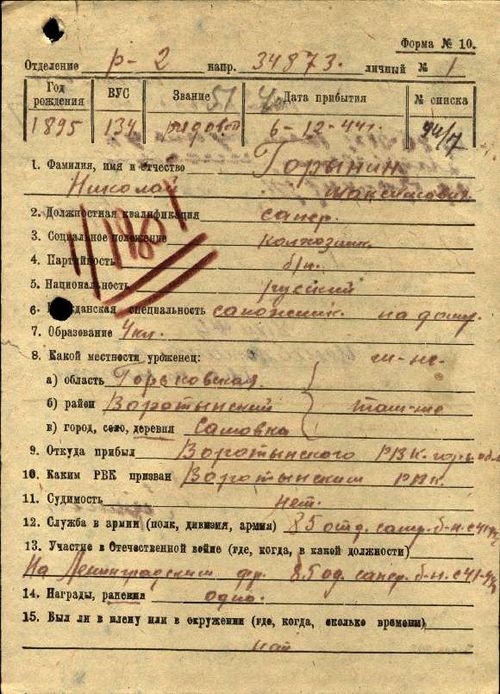 Форма № 10.
Отделение р-2 напр. 34873. личный № 1
Год рождения ВУС Звание 51 Дата прибытия № списка
1895 134 рядовой 6-12-44г.
1. Фамилия, имя и отчество Горынин
Николай Максимович
2. Должностная квалификация сапер.
3. Социальное положение колхозник
4. Партийность б/п.
5. Национальность русский
6. Гражданская специальность сапожник на дому.
7. Образование 4 кл.
8. Какой местности уроженец:
а) область Горьковская
б) район Воротынский
в) город, село, деревня Сомовка
9. Откуда прибыл Воротынского РВК. горь. обл
10. Каким РВК призван Воротынским РВК.
11. Судимость нет.
12. Служба в армии (полк, дивизия, армия) 85 отд. сапер. б-н. с 41-
13. Участие в Отечественной войне (где, когда, в какой должности)
На Ленинградском фр. 85 од. сапер. б-н. с 41-
14. Награды, ранения одно.
15. Был ли в плену или в окружении (где, когда, сколько времени)
нет